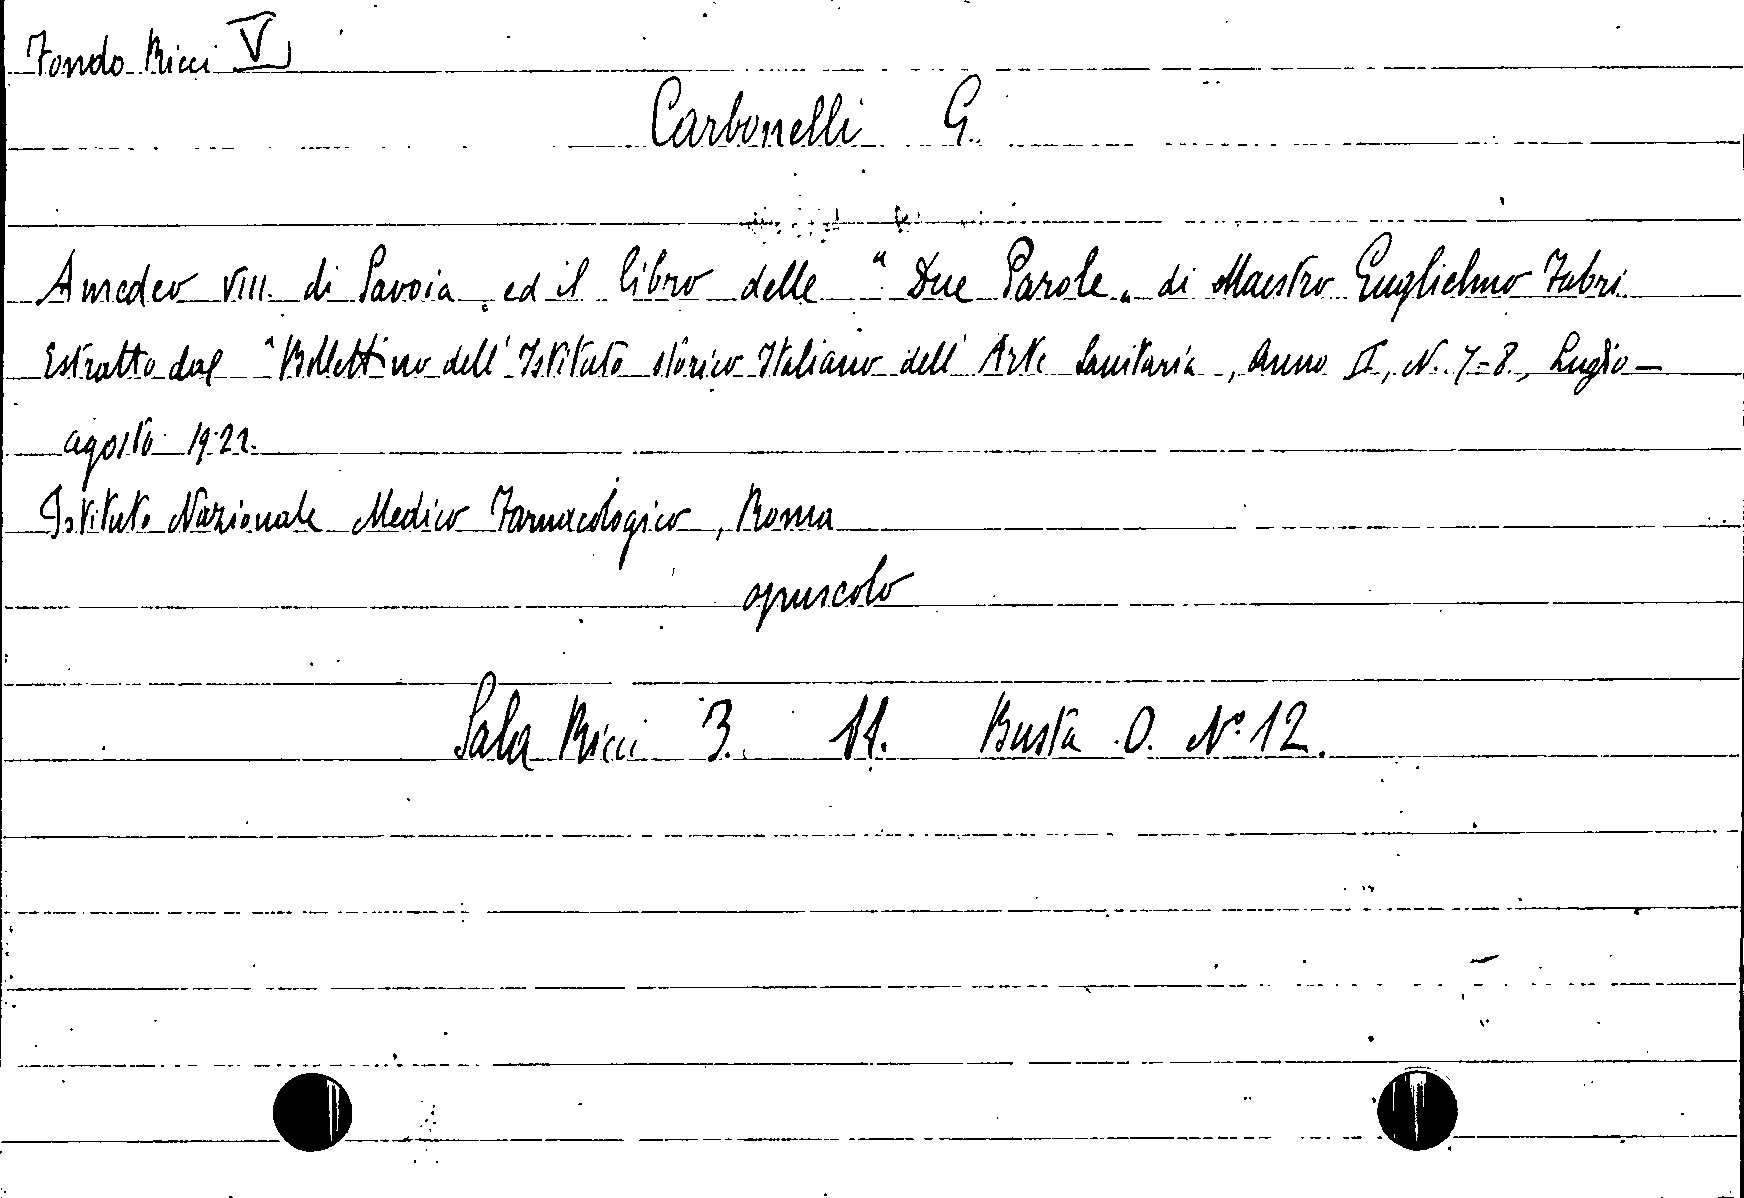 Fondo Ricci V
Carbonelli G.
Amedeo VIII. di Savoia ed il libro delle "Due Parole" di Maestro Guglielmo Fabri
Estratto dal "Bollettino dell'Istituto storico Italiano dell'Arte Sanitaria, Anno II, N. 7-8, Luglio-
agosto 1922.
Istituto Nazionale Medico Farmacologico, Roma
opuscolo
Sala Ricci 3. 11. Busta O. N° 12.